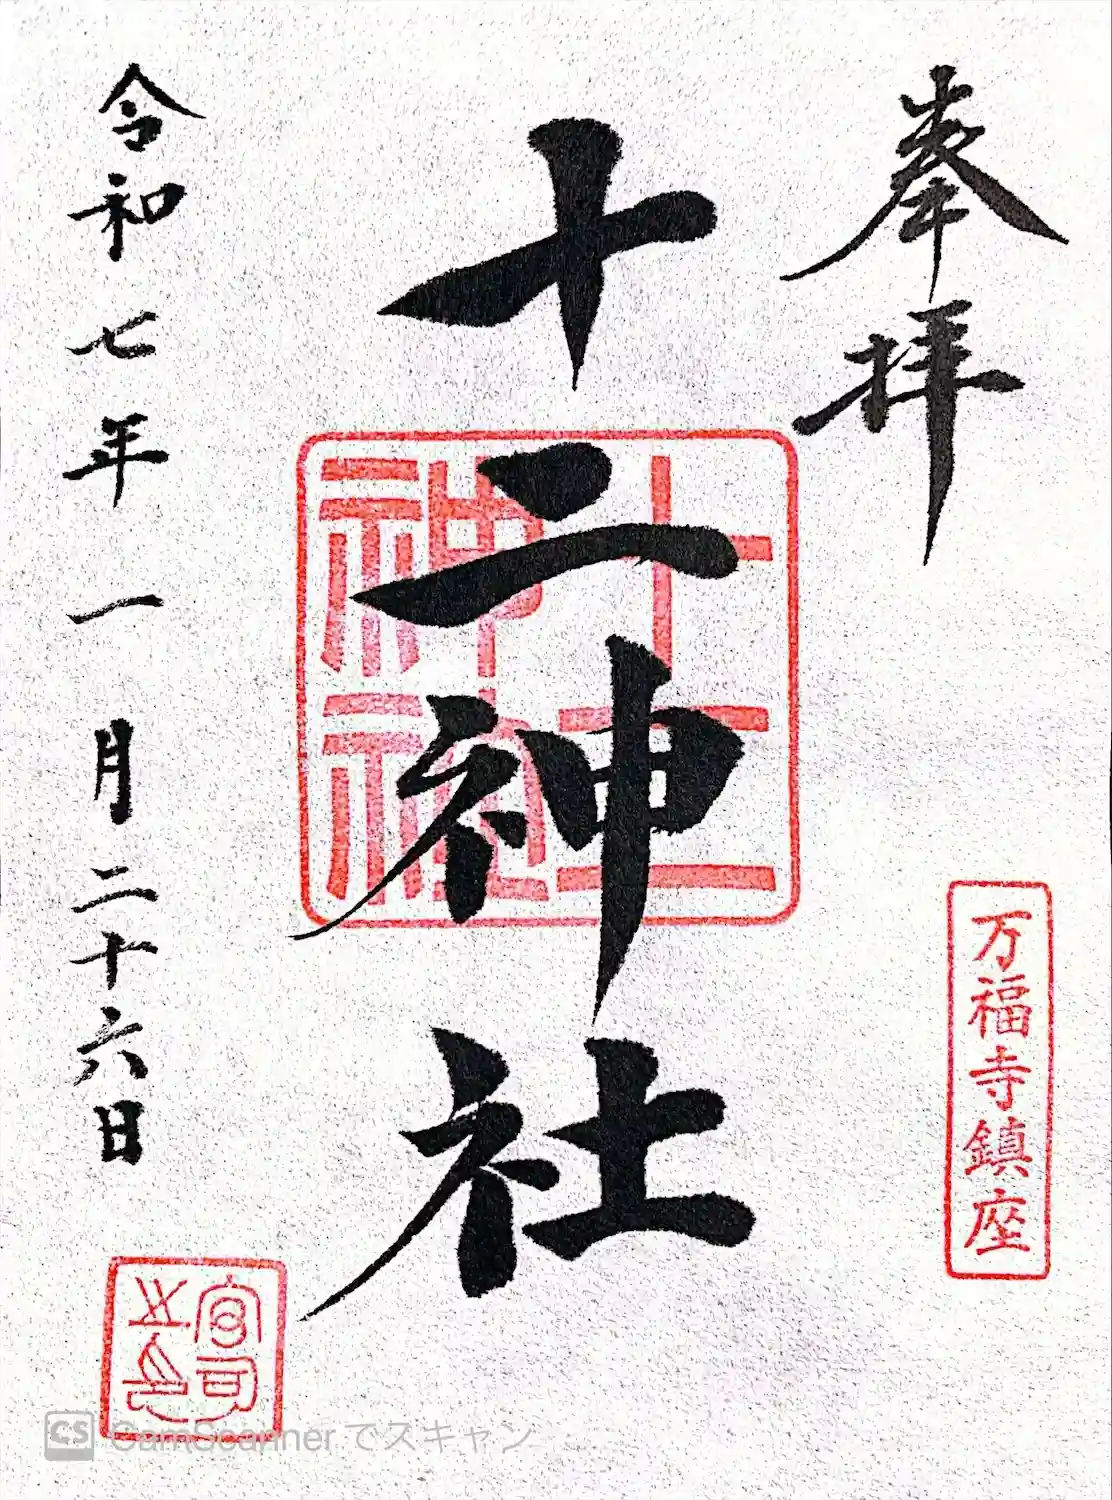 奉拝
万福寺鎮座
十二神社
十二
神社
令和七年一月二十六日
宮司
之印
CS CamScanner でスキャン